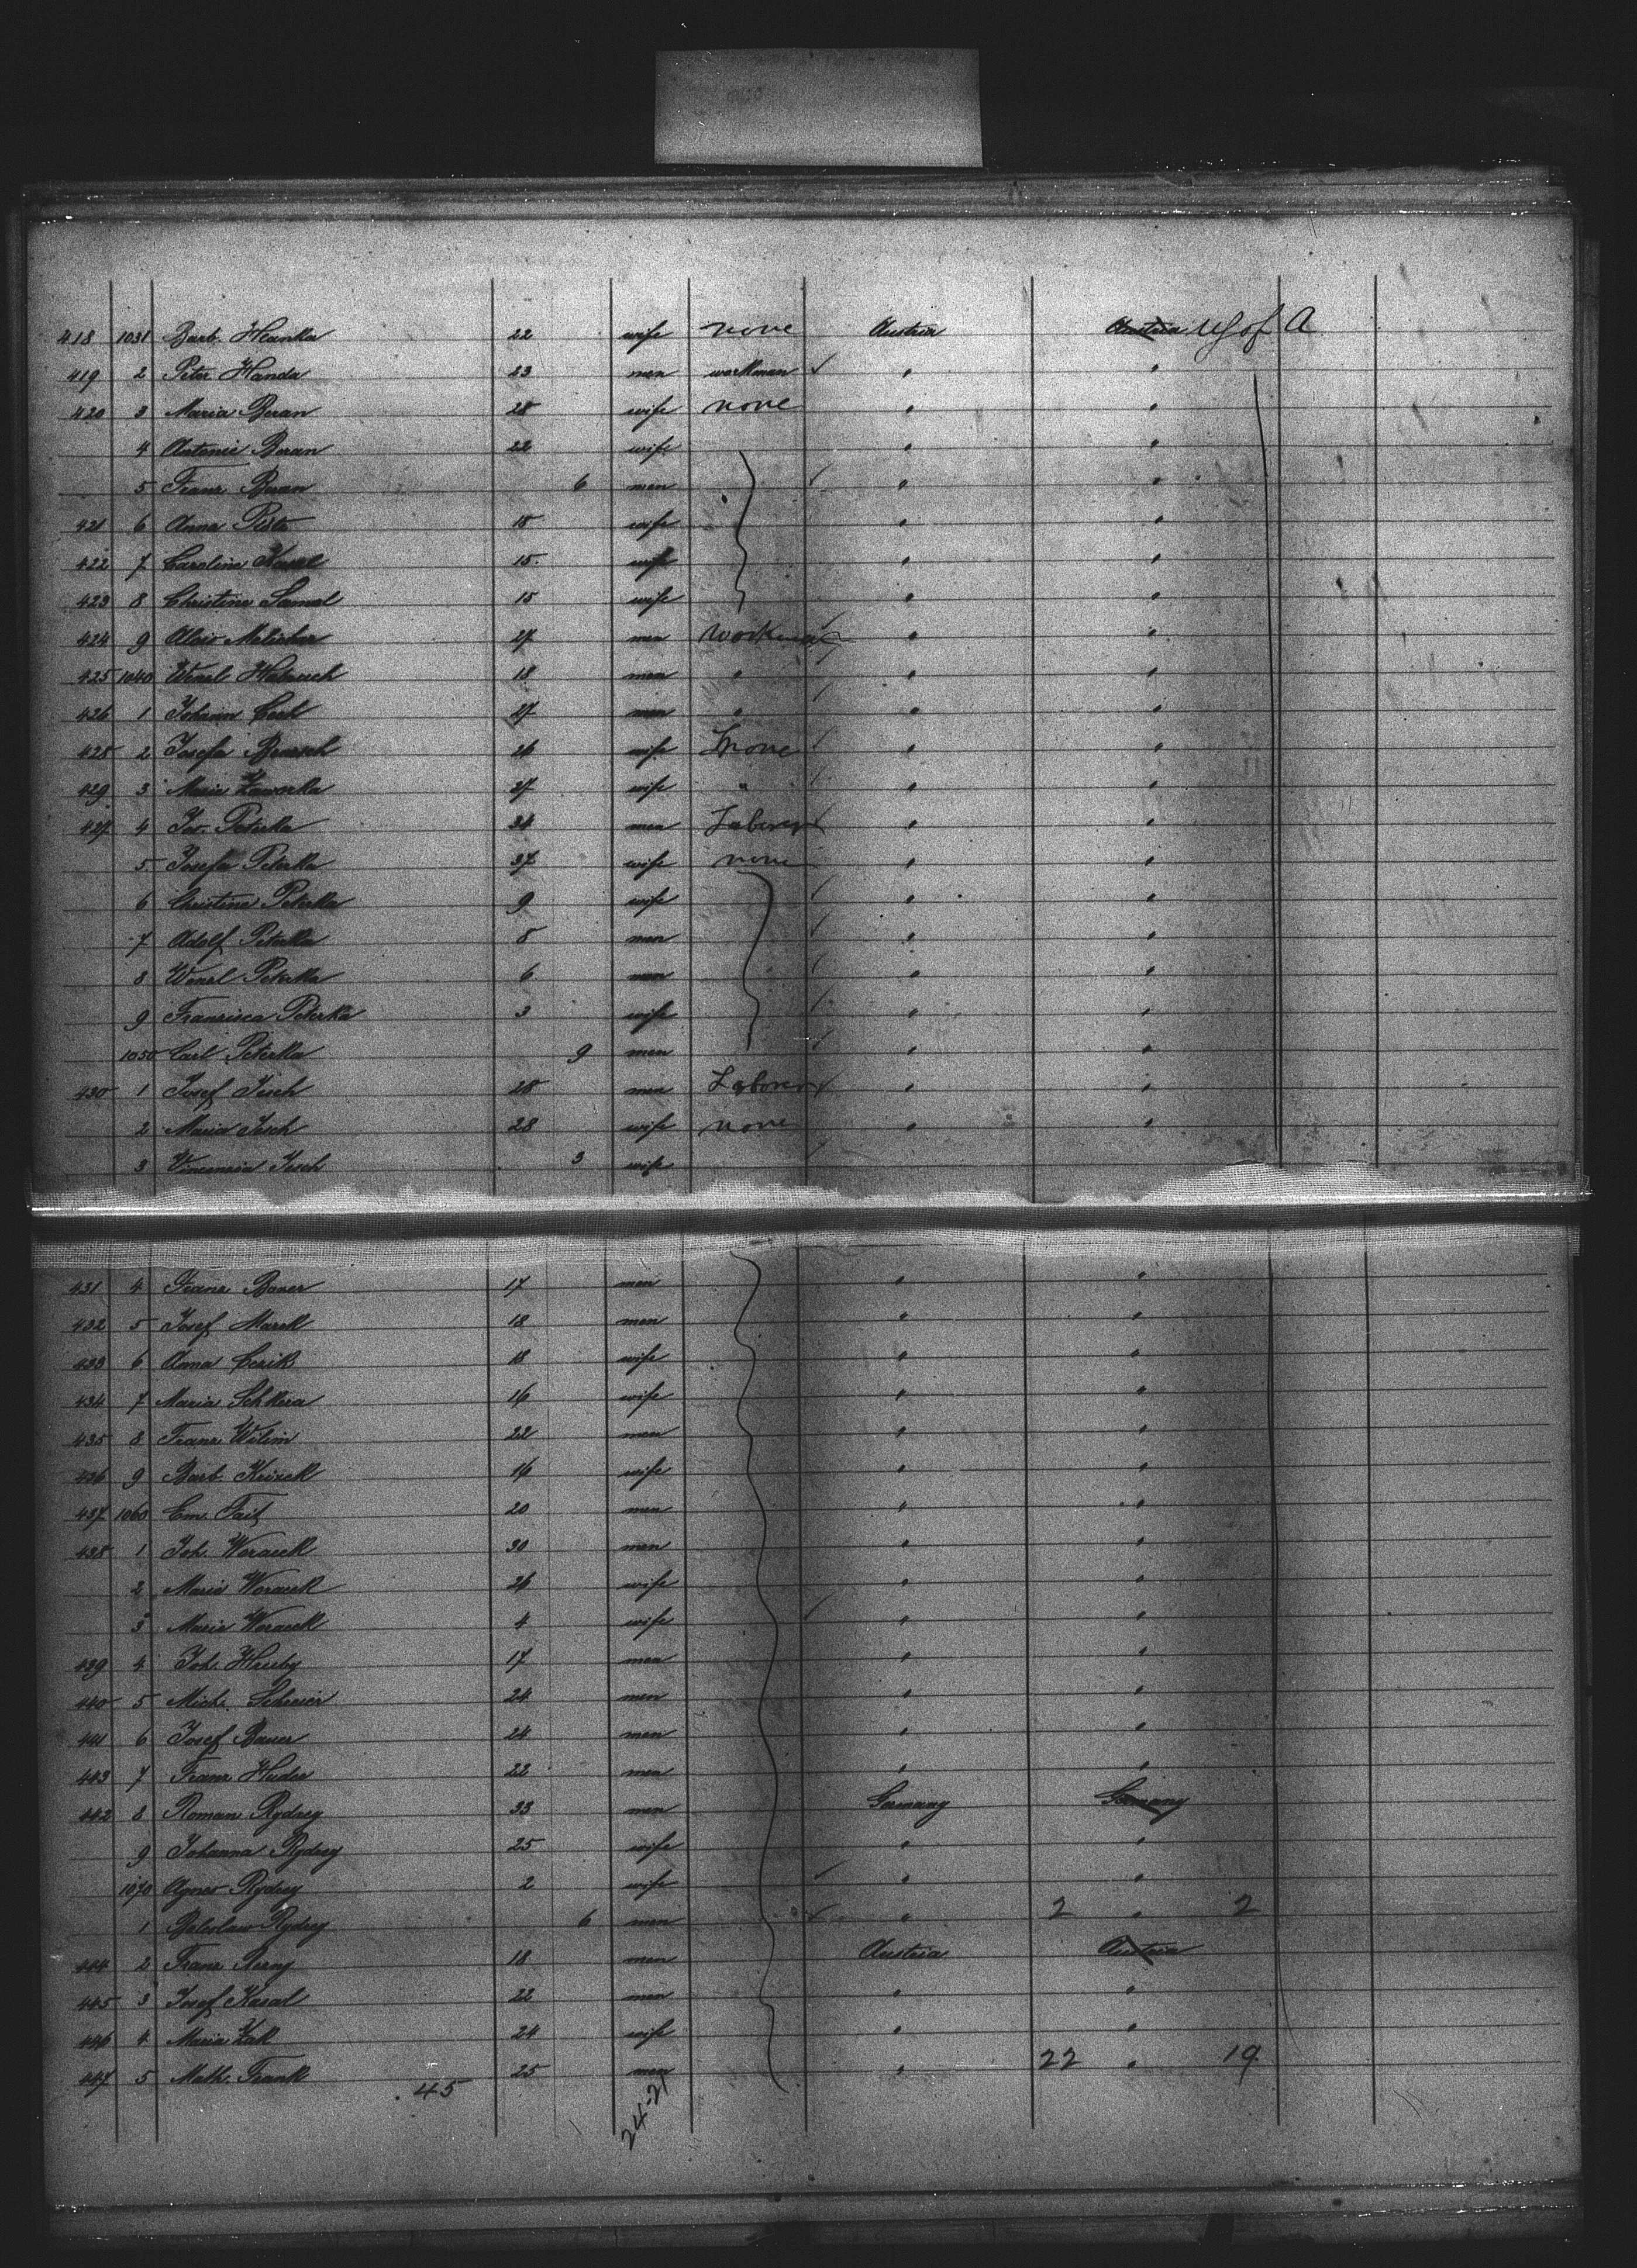 418 1031 Barb. Hanka 22 wife none Austria Austria US of A
419 2 Peter Handa 23 men workman " "
420 3 Maria Beran 28 wife none " "
4 Antonie Beran 22 wife " "
5 Franz Beran 6 men " "
421 6 Anna 18 wife " "
422 7 Caroline 15 wife " "
423 8 Christine Samal 15 wife " "
424 9 Alois Melichar 27 men workman " "
425 1040 Wenzl 18 men " " "
426 1 Johann 27 men " " "
428 2 Josefa 26 wife none " "
429 3 Maria Zaworka 27 wife " " "
427 4 Jos. Peterka 34 men Laborer " "
5 Josefa Peterka 37 wife none " "
6 Christine Peterka 9 wife " "
7 Adolf Peterka 8 men " "
8 Wenzl Peterka 6 men " "
9 Franzisca Peterka 3 wife " "
1050 Carl Peterka 9 men " "
430 1 Josef Jesch 28 men Laborer " "
2 Maria Jesch 28 wife none " "
3 Vincenzia Jesch 3 wife
431 4 Franz Bauer 17 men " "
432 5 Josef Marek 18 men " "
433 6 Anna 18 wife " "
434 7 Maria 16 wife " "
435 8 Franz Wilim 22 men " "
436 9 Barb. 16 wife " "
437 1060 Em. Fait 20 men " "
438 1 Joh. Woracek 30 men " "
2 Maria Woracek 26 wife " "
3 Maria Woracek 4 wife " "
439 4 Joh. Hruby 17 men " "
440 5 Mich. 24 men " "
441 6 Josef Bauer 24 men " "
443 7 Franz 22 men " "
442 8 Roman Rydzey 33 men Germany Germany
9 Johanna Rydzey 25 wife " "
1070 Agnes Rydzey 2 wife " "
1 Boleslaw Rydzey 6 men " 2 " 2
444 2 Franz 18 men Austria Austria
445 3 Josef Kasal 22 men " "
446 4 Maria Zak 24 wife " "
447 5 Math. Frank 25 men " 22 " 19
45
24-21